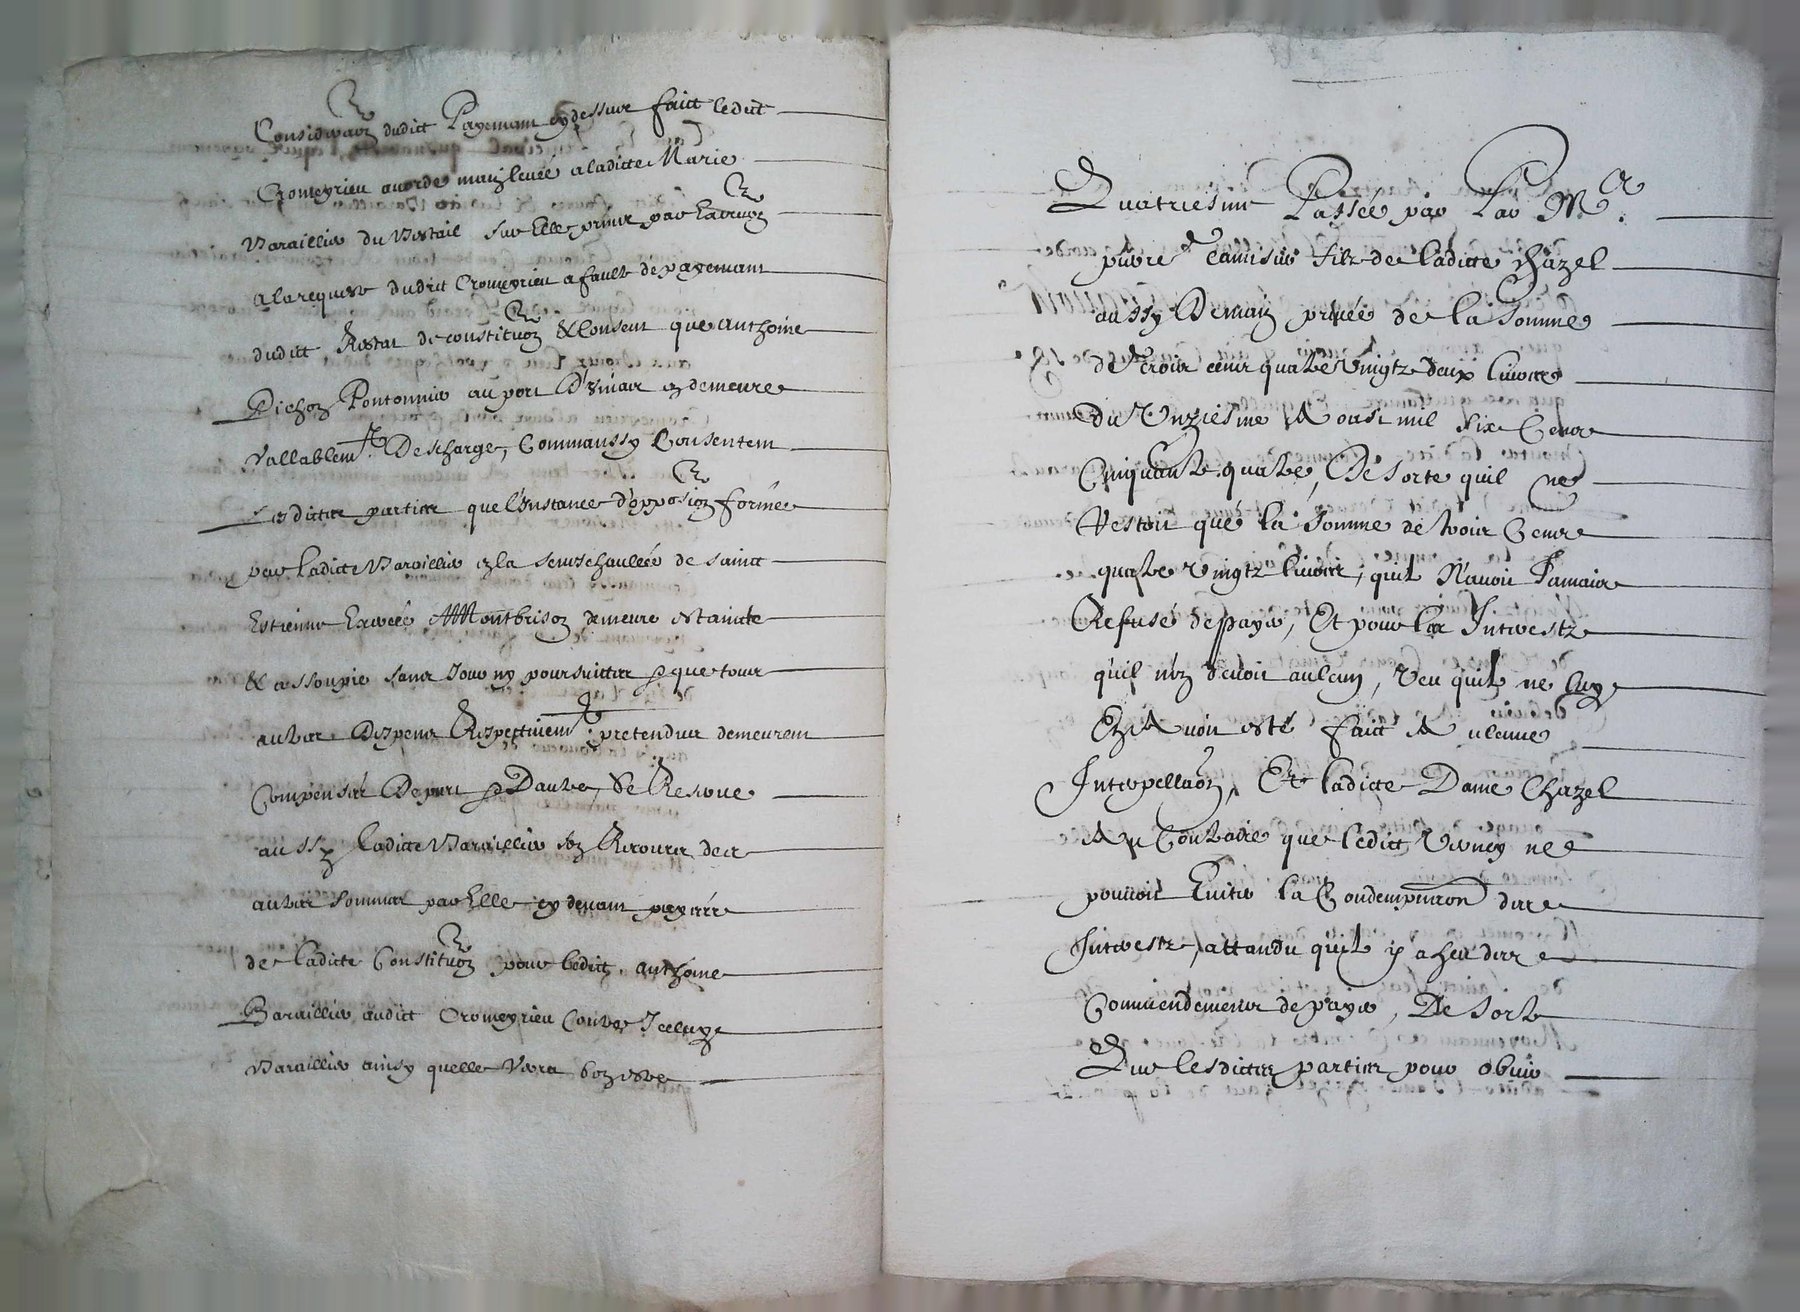 Consideraon dudict Payemant cy dessus faict ledict
Cromeyrieu acorde mainlevée a ladicte Marie
Varaillier du Bestail sur elle prins par Execuon
a la requeste dudict Cromeyrieu a fault de payemant
dudict Restat de constituon & consent que anthoine
Pichon Pontonnier au port d' en demeure
vallablemt Deschargé, Comm aussy Consentent
lesdictes parties que l'Instance d'opposion formée
par ladicte Varaillier en la Seneschaulcée de sainct
Estienne Montbrison demeure estaincte
& assoupie sans Jour ny poursuittes & que tous
autres despens Respectivemt pretendus demeurent
Compensés De part & Dautre, Se Reserve
aussy ladicte Varaillier son Recours des
autres sommes par Elle cy devant payées
de ladicte Constituon pour ledict anthoine
Baraillier audict Cromeyrieu Contre Iceluy
Varaillier ainsy quelle verra bon estre
Quatriesme Passée par Par Mr
pierre filz de ladicte Chazel
aussy Demain privée de la Somme
de Trois cens quatre vingtz deux livres
Du Unziesme Aoust mil six Cens
Cinquante quatre, De sorte quil ne
Restoit que la somme de trois Cens
quatre vingtz livres, quil N'avoit Jamais
Refusé de payer, Et pour les Interestz
qu'il n'en devoit aulcun, veu quil ne luy
En Avoit esté faict Aulcune
Interpellaon, Et ladicte Dame Chazel
Au Contraire que ledict Verney ne
pouvoit Eviter la Condempnaon des
Interestz, attandu quil y a heu des
Commendemens de payer, De sorte
Que lesdictes parties pour obvier